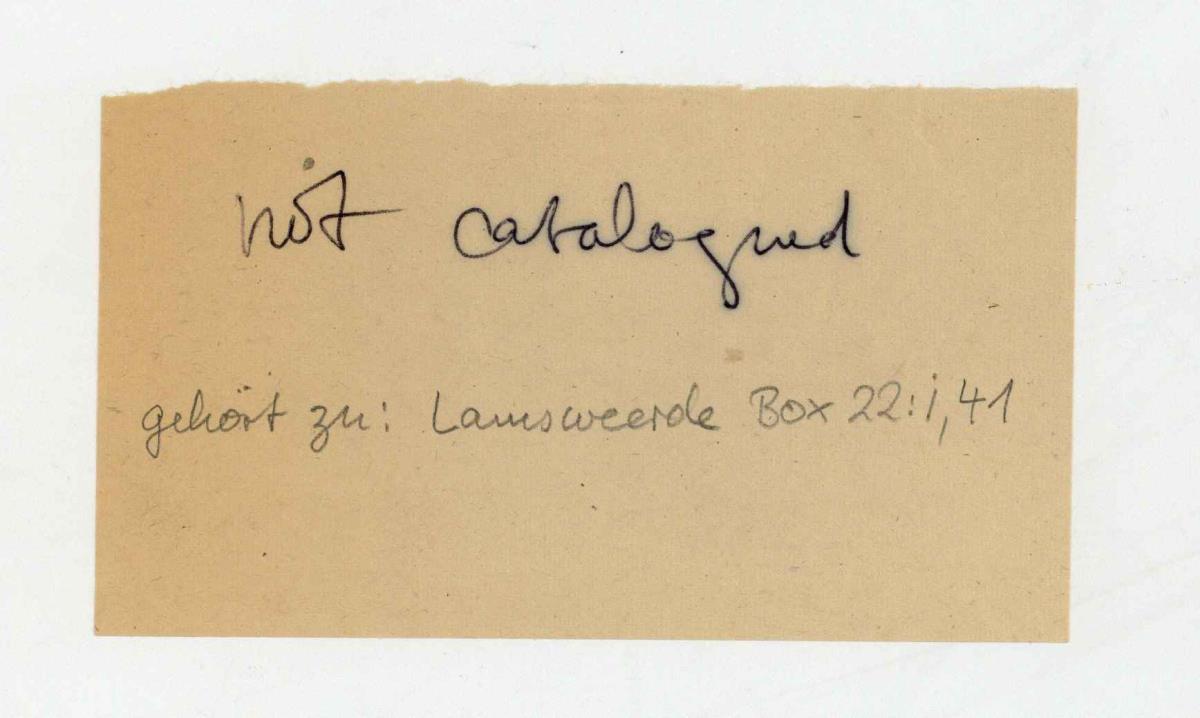 not catalogued
gehört zu: Lamsweerde Box 22:i,41